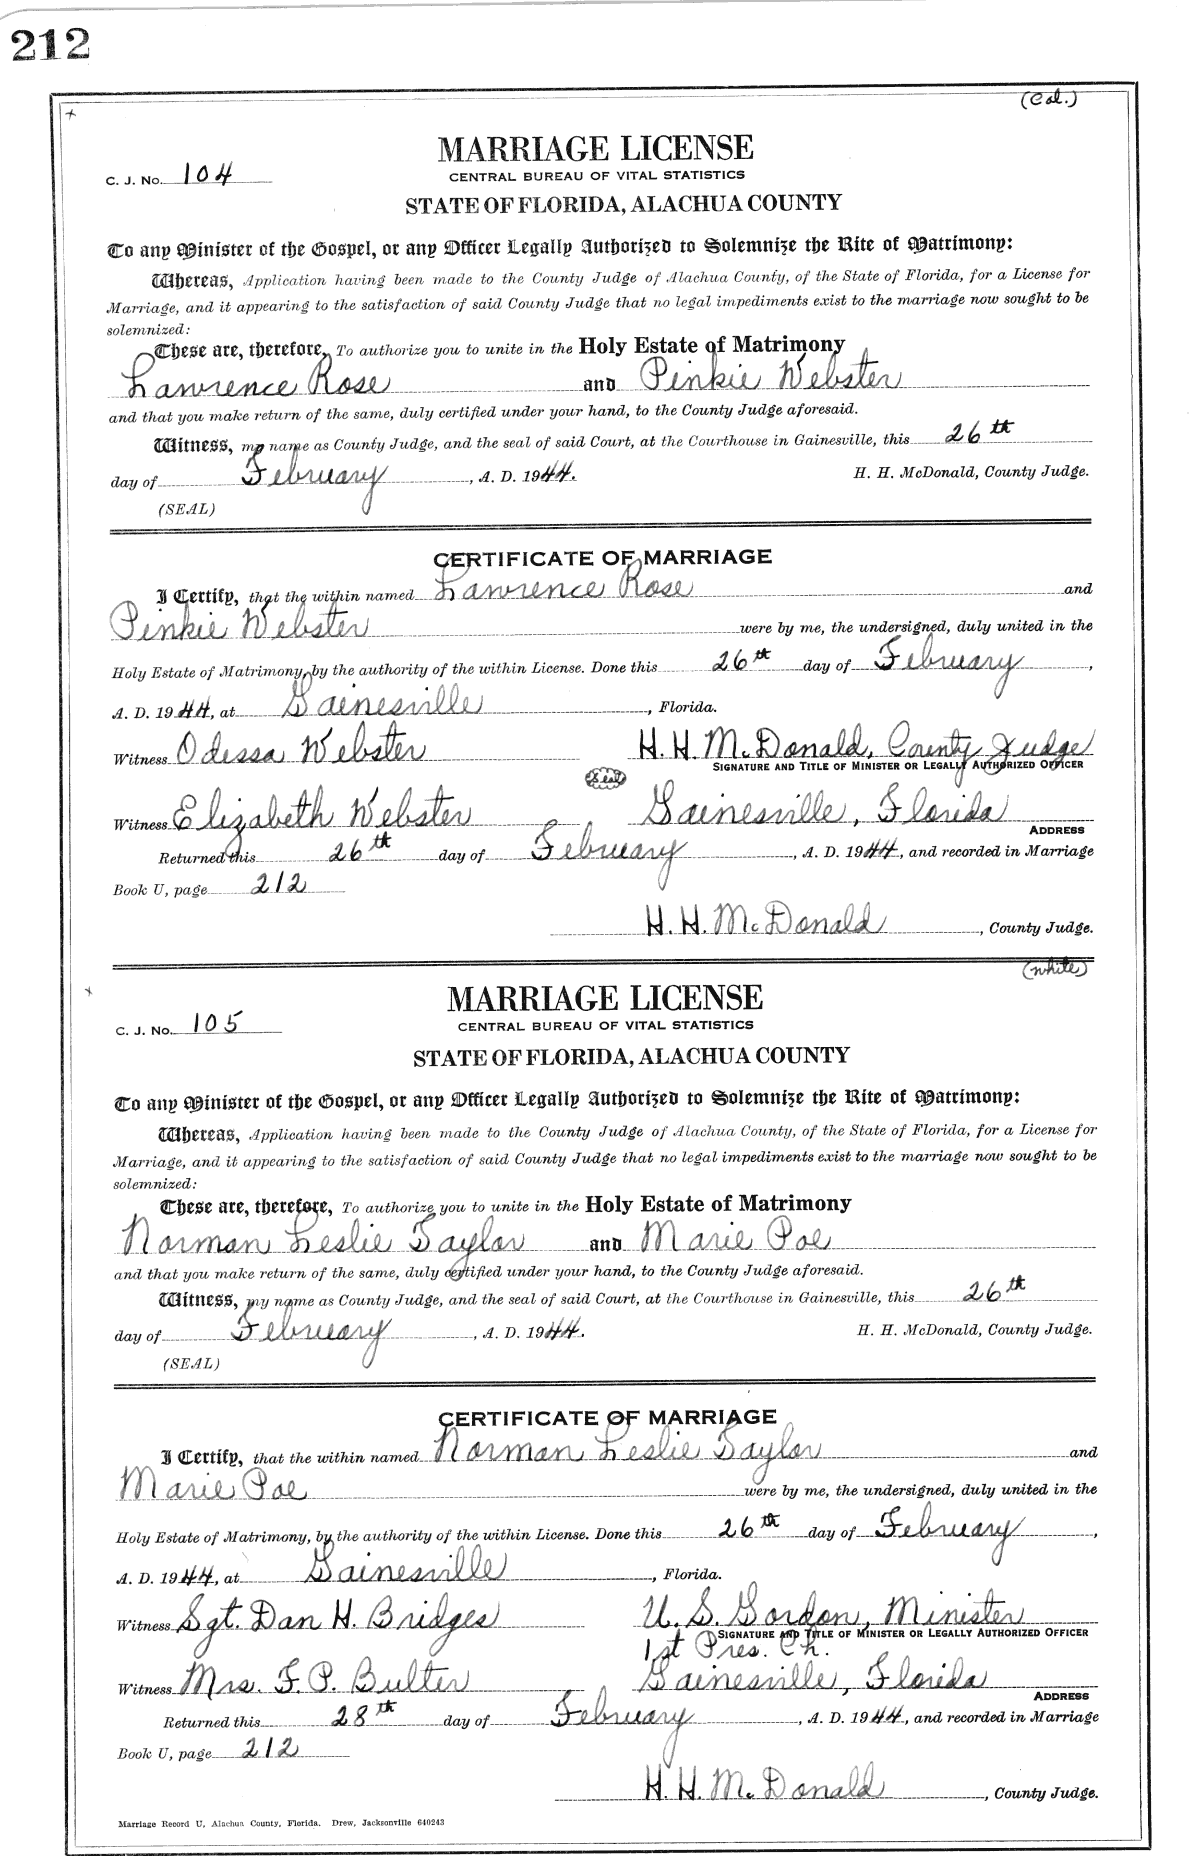 212
(Col.)
MARRIAGE LICENSE
C. J. No. 104
CENTRAL BUREAU OF VITAL STATISTICS
STATE OF FLORIDA, ALACHUA COUNTY
To any Minister of the Gospel, or any Officer Legally Authorized to Solemnize the Rite of Matrimony:
Whereas, Application having been made to the County Judge of Alachua County, of the State of Florida, for a License for
Marriage, and it appearing to the satisfaction of said County Judge that no legal impediments exist to the marriage now sought to be
solemnized:
These are, therefore, To authorize you to unite in the Holy Estate of Matrimony
Lawrence Rose and Pinkie Webster
and that you make return of the same, duly certified under your hand, to the County Judge aforesaid.
Witness, my name as County Judge, and the seal of said Court, at the Courthouse in Gainesville, this 26th
day of February, A. D. 1944. H. H. McDonald, County Judge.
(SEAL)
CERTIFICATE OF MARRIAGE
I Certify, that the within named Lawrence Rose and
Pinkie Webster were by me, the undersigned, duly united in the
Holy Estate of Matrimony, by the authority of the within License. Done this 26th day of February,
A. D. 1944, at Gainesville, Florida.
Witness Odessa Webster H. H. McDonald, County Judge
SIGNATURE AND TITLE OF MINISTER OR LEGALLY AUTHORIZED OFFICER
Seal
Witness Elizabeth Webster Gainesville, Florida
ADDRESS
Returned this 26th day of February, A. D. 1944, and recorded in Marriage
Book U, page 212
H. H. McDonald, County Judge.
(white)
MARRIAGE LICENSE
C. J. No. 105
CENTRAL BUREAU OF VITAL STATISTICS
STATE OF FLORIDA, ALACHUA COUNTY
To any Minister of the Gospel, or any Officer Legally Authorized to Solemnize the Rite of Matrimony:
Whereas, Application having been made to the County Judge of Alachua County, of the State of Florida, for a License for
Marriage, and it appearing to the satisfaction of said County Judge that no legal impediments exist to the marriage now sought to be
solemnized:
These are, therefore, To authorize you to unite in the Holy Estate of Matrimony
Norman Leslie Taylor and Marie Poe
and that you make return of the same, duly certified under your hand, to the County Judge aforesaid.
Witness, my name as County Judge, and the seal of said Court, at the Courthouse in Gainesville, this 26th
day of February, A. D. 1944. H. H. McDonald, County Judge.
(SEAL)
CERTIFICATE OF MARRIAGE
I Certify, that the within named Norman Leslie Taylor and
Marie Poe were by me, the undersigned, duly united in the
Holy Estate of Matrimony, by the authority of the within License. Done this 26th day of February,
A. D. 1944, at Gainesville, Florida.
Witness Sgt. Dan H. Bridges U. S. Gordon, Minister
SIGNATURE AND TITLE OF MINISTER OR LEGALLY AUTHORIZED OFFICER
1st Pres. Ch.
Witness Mrs. F. P. Bulter Gainesville, Florida
ADDRESS
Returned this 28th day of February, A. D. 1944, and recorded in Marriage
Book U, page 212
H. H. McDonald, County Judge.
Marriage Record U, Alachua County, Florida. Drew, Jacksonville 640243